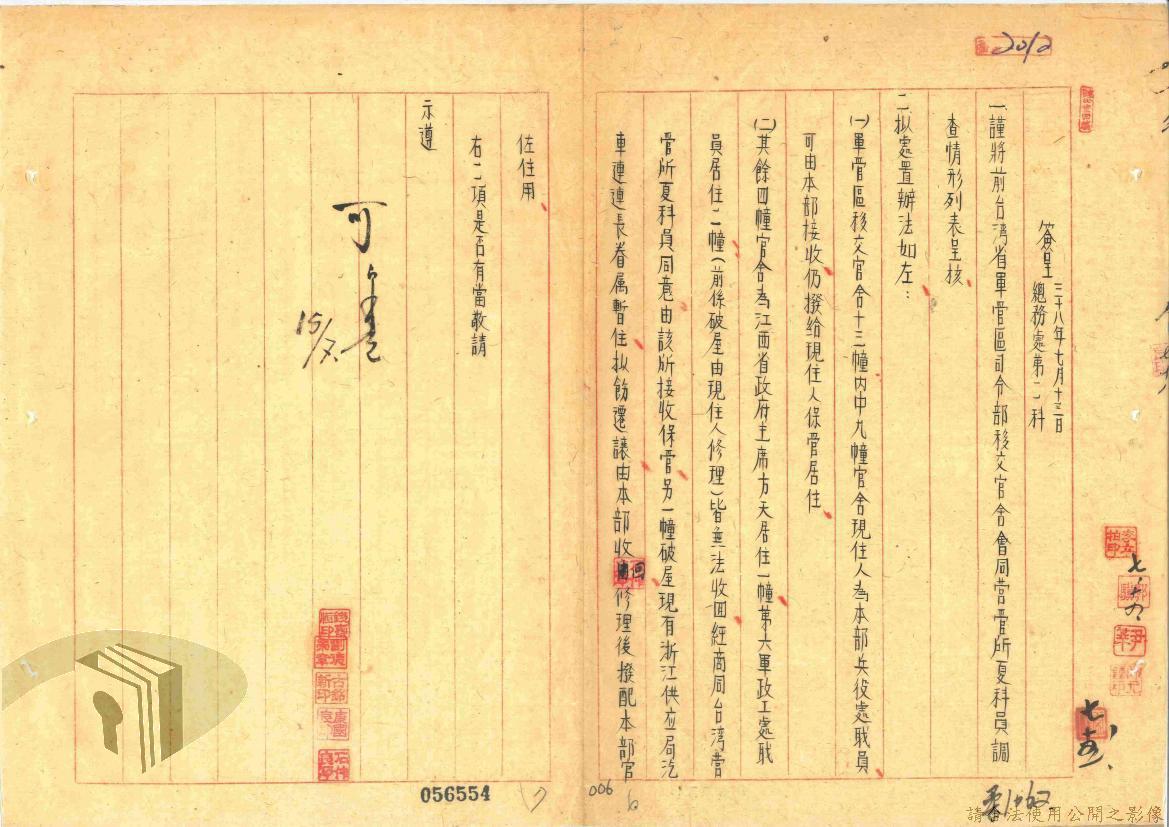 2012
簽呈
三十八年七月十三日
總務處第二科
一謹將前台湾省軍管區司令部移交官舍會同营管所夏科員調
查情形列表呈核
二拟處置辦法如左：
(一)軍管區移交官舍十三幢内中九幢官舍現住人為本部兵役處職員
可由本部接收仍撥给現住人保管居住
(二)其餘四幢官舍為江西省政府主席方天居住一幢第六軍政工處职
員居住二幢(前係破屋由現住人修理)皆無法收回經商同台湾营
管所夏科員同意由該所接收保管另一幢破屋現有浙江供应局汽
車連連長眷属暫住拟飭遷讓由本部收回修理後撥配本部官
佐住用
右二項是否有當敬請
示遵
可
15/7
056554
006
請合法使用公開之影像